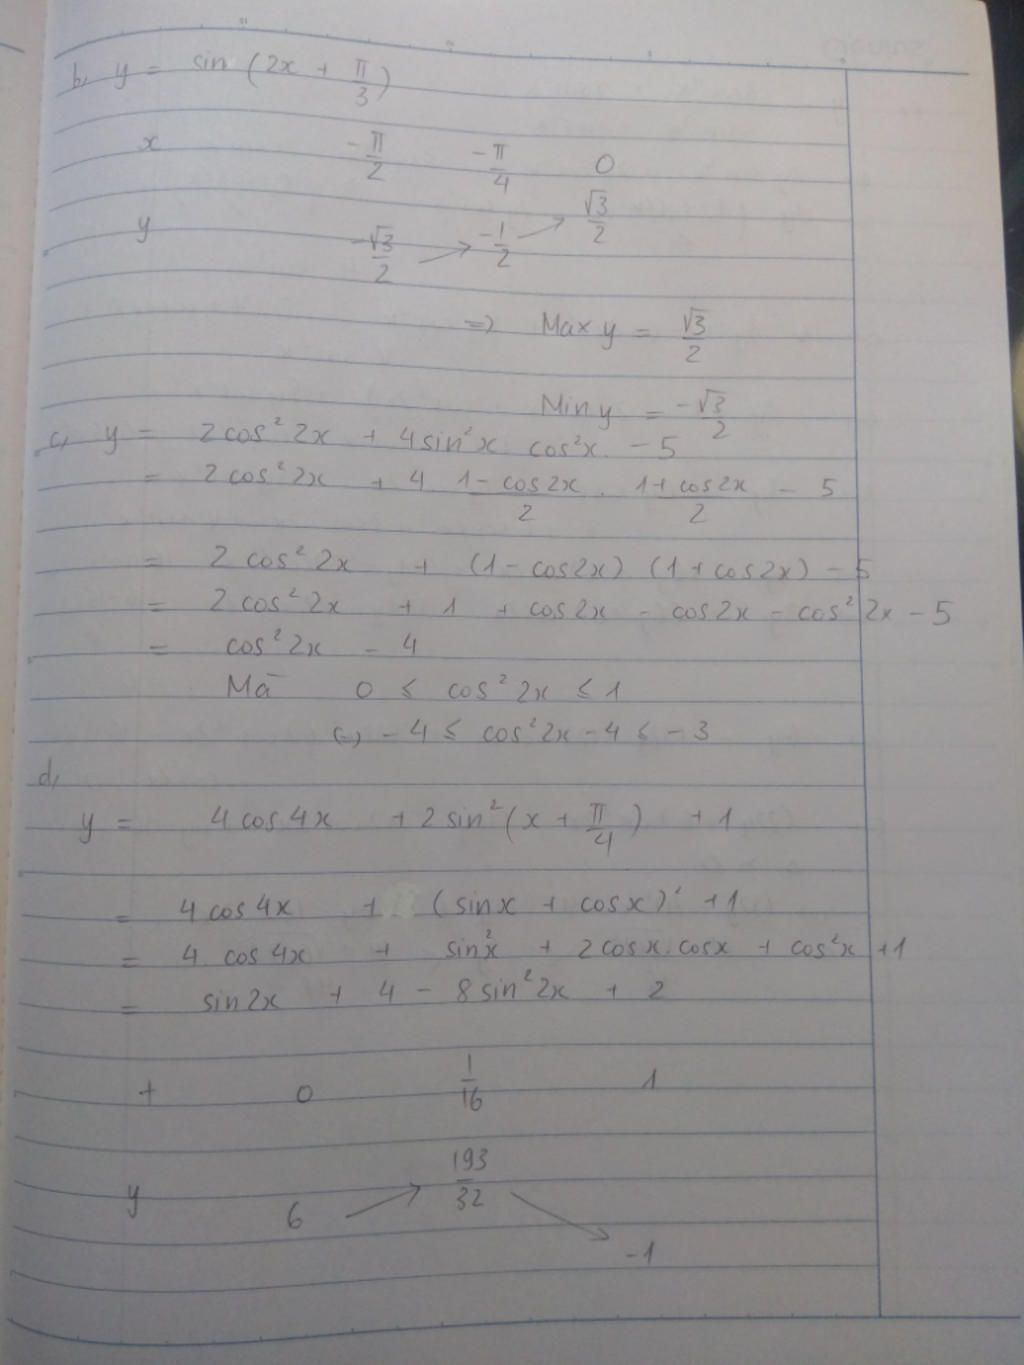 b, y = sin (2x + π/3)
x -π/2 -π/4 0
y -√3/2 -1/2 √3/2
=> Max y = √3/2
Min y = -√3/2
c, y = 2cos² 2x + 4sin²x cos²x - 5
= 2cos² 2x + 4. (1-cos2x)/2 . (1+cos2x)/2 - 5
= 2cos² 2x + (1-cos2x) (1+cos2x) - 5
= 2cos² 2x + 1 + cos2x - cos2x - cos² 2x - 5
= cos² 2x - 4
Mà 0 ≤ cos² 2x ≤ 1
(=) -4 ≤ cos² 2x - 4 ≤ -3
d,
y = 4cos4x + 2sin² (x + π/4) + 1
= 4cos4x + (sinx + cosx)² + 1
= 4. cos4x + sin²x + 2cosx.cosx + cos²x + 1
= sin2x + 4 - 8sin² 2x + 2
t 0 1/16 1
y 6 193/32 -1